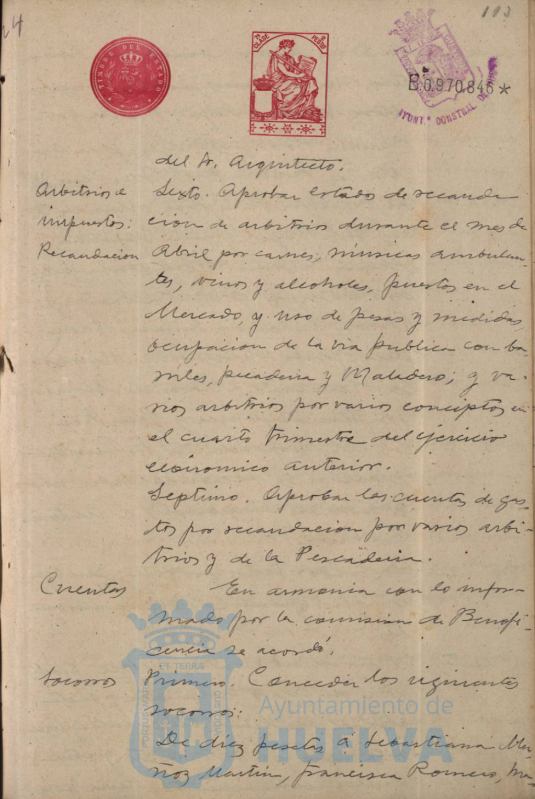 24
193
TIMBRE DEL ESTADO
CLASE
B.0.970.846*
AYUNT
del Sr. Arquitecto.
Arbitrios e
impuestos:
Recaudacion
Sexto. Aprobar estados de recauda
cion de arbitrios durante el mes de
Abril por carnes, músicas ambulan-
tes, vinos y alcoholes, puestos en el
Mercado y uso de pesas y medidas,
ocupacion de la via publica con ba-
rriles, pescaderia y Matadero; y va-
rios arbitrios por varios conceptos en
el cuarto trimestre del ejercicio
economico anterior.
Septimo. Aprobar las cuentas de gas-
tos por recaudacion por varios arbi-
trios y de la Pescaderia.
Cuentas
En armonia con lo infor-
mado por la comision de Benefi-
cencia se acordó.
Socorros
Primero. Conceder los siguientes
socorros:
De diez pesetas á Sebastiana Mu-
ñoz Martin, Francisca Romero,
Ayuntamiento de
HUELVA